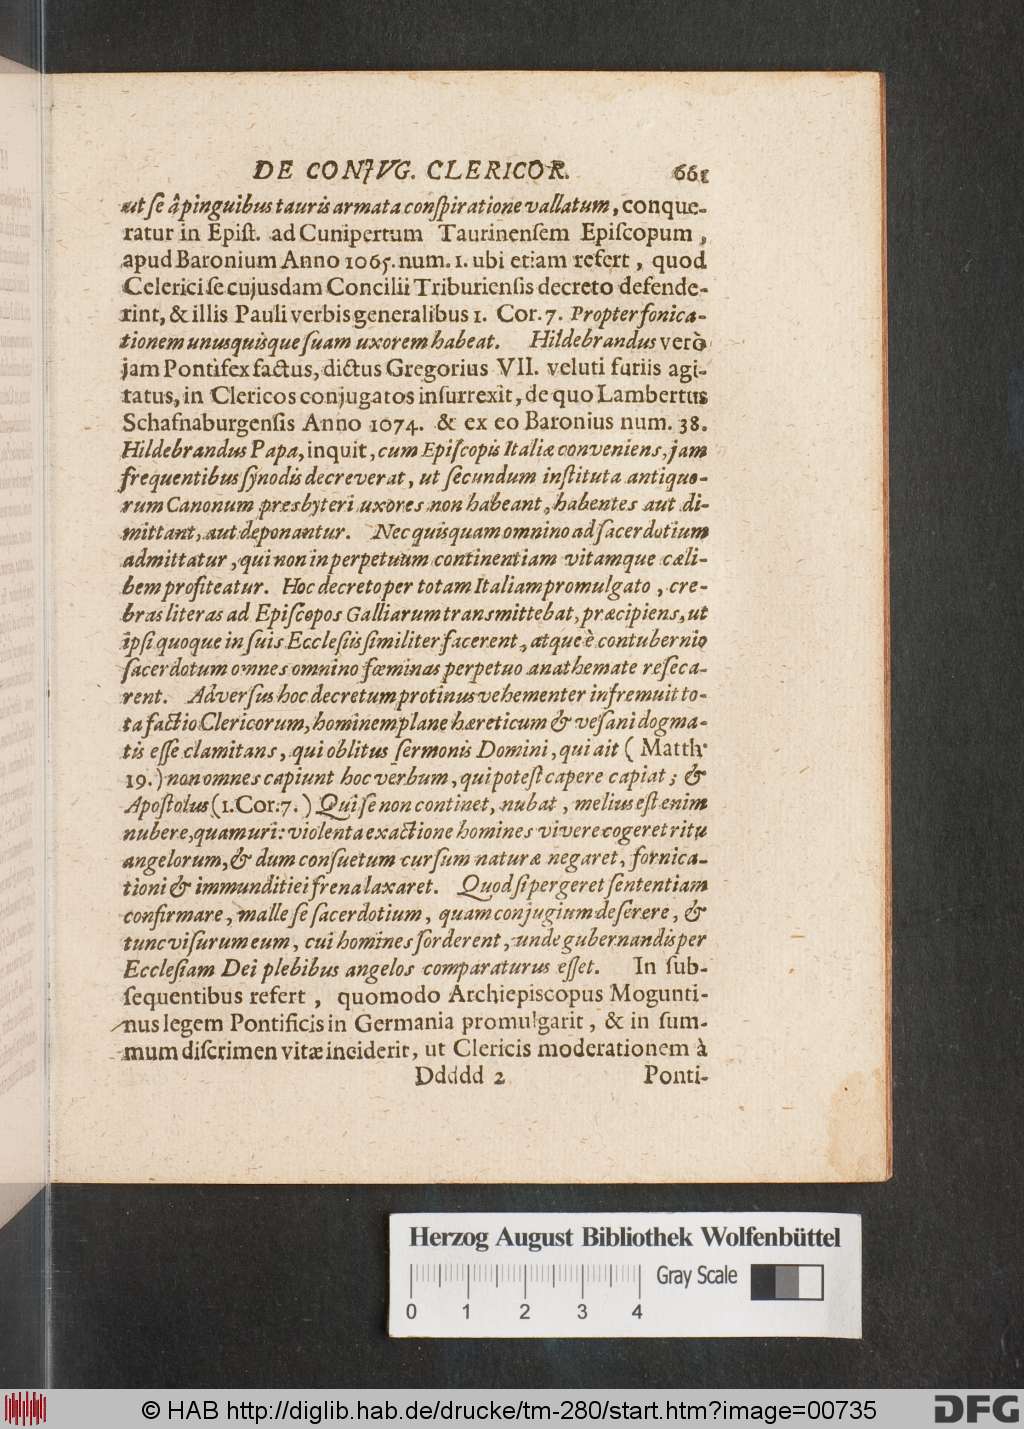 DE CONJVG. CLERICOR. 661
ut ſe â pinguibus tauris armata conſpiratione vallatum, conque-
ratur in Epiſt. ad Cunipertum Taurinenſem Epiſcopum,
apud Baronium Anno 1065. num. 1. ubi etiam refert, quod
Celerici ſe cujusdam Concilii Triburienſis decreto defende-
rint, & illis Pauli verbis generalibus 1. Cor. 7. Propter fonica-
tionem unusquisque ſuam uxorem habeat. Hildebrandus verò
jam Pontifex factus, dictus Gregorius VII. veluti furiis agi-
tatus, in Clericos conjugatos inſurrexit, de quo Lambertus
Schafnaburgenſis Anno 1074. & ex eo Baronius num. 38.
Hildebrandus Papa, inquit, cum Epiſcopis Italiæ conveniens, jam
frequentibus ſynodis decreverat, ut ſecundum inſtituta antiquo-
rum Canonum presbyteri uxores non habeant, habentes aut di-
mittant, aut deponantur. Nec quisquam omnino ad ſacerdotium
admittatur, qui non in perpetuum continentiam vitamque cæli-
bem profiteatur. Hoc decreto per totam Italiam promulgato, cre-
bras literas ad Epiſcopos Galliarum transmittebat, præcipiens, ut
ipſi quoque in ſuis Eccleſiis ſimiliter facerent, atque è contubernio
ſacerdotum omnes omnino fœminas perpetuo anathemate reſeca-
rent. Adverſus hoc decretum protinus vehementer infremuit to-
ta factio Clericorum, hominem plane hæreticum & veſani dogma-
tis eſſe clamitans, qui oblitus ſermonis Domini, qui ait ( Matth.
19.) non omnes capiunt hoc verbum, qui poteſt capere capiat; &
Apoſtolus (1. Cor. 7.) Qui ſe non continet, nubat, melius eſt enim
nubere, quam uri: violenta exactione homines vivere cogeret ritu
angelorum, & dum conſuetum curſum naturæ negaret, fornica-
tioni & immunditiei frena laxaret. Quod ſi pergeret ſententiam
confirmare, malle ſe ſacerdotium, quam conjugium deſerere, &
tunc viſurum eum, cui homines ſorderent, unde gubernandis per
Eccleſiam Dei plebibus angelos comparaturus eſſet. In ſub-
ſequentibus refert, quomodo Archiepiscopus Mogunti-
nus legem Pontificis in Germania promulgarit, & in ſum-
mum diſcrimen vitæ inciderit, ut Clericis moderationem à
Ddddd 2 Ponti-
Herzog August Bibliothek Wolfenbüttel
Gray Scale
0 1 2 3 4
© HAB http://diglib.hab.de/drucke/tm-280/start.htm?image=00735
DFG